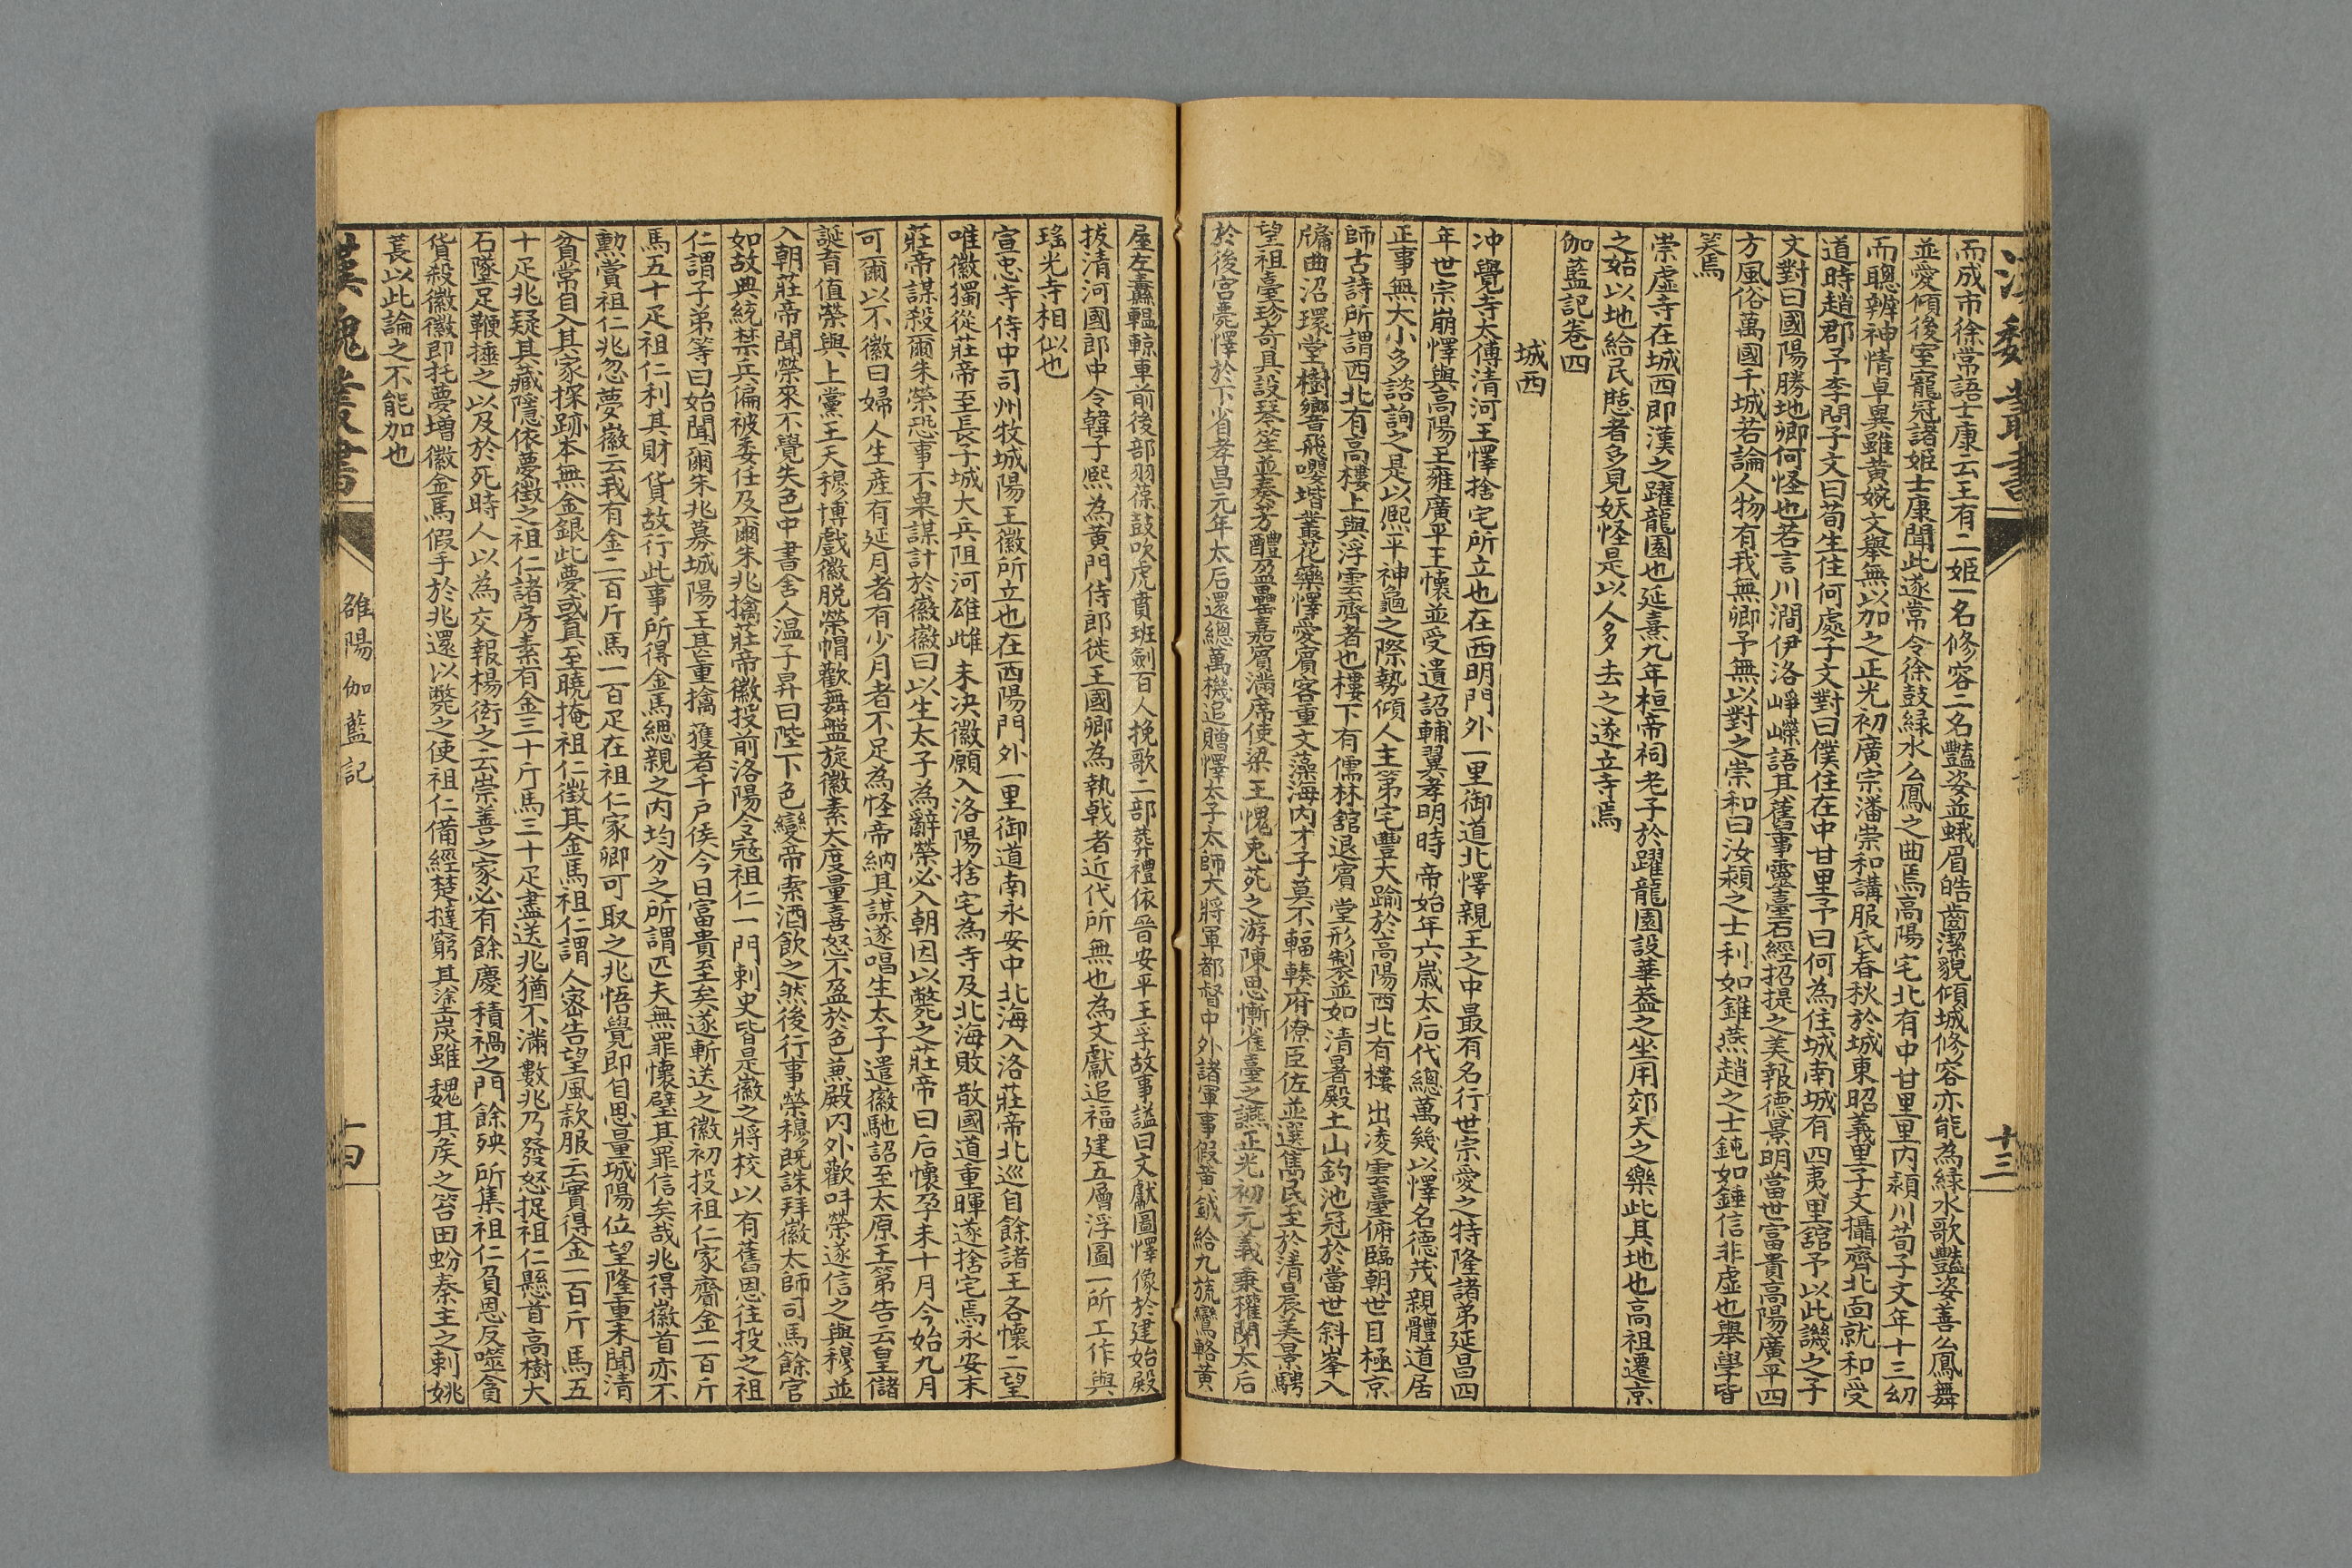 而成市徐常語士康云王有二姬一名修容二名豔姿並蛾眉皓齒潔貌傾城修容亦能為綠水歌豔姿善么鳳舞
並愛傾後室寵冠諸姬士康聞此遂常令徐鼓綠水么鳳之曲焉高陽宅北有中甘里里內潁川荀子文年十三幼
而聰辨神情卓異雖黃婉文舉無以加之正光初廣宗潘崇和講服氏春秋於城東昭義里子文攝齊北面就和受
道時趙郡予李問子文曰荀生住何處子文對曰僕住在中甘里予曰何為住城南城有四夷里舘予以此譏之子
文對曰國陽勝地卿何怪也若言川澗伊洛崢嶸語其舊事靈臺石經招提之美報德景明當世富貴高陽廣平四
方風俗萬國千城若論人物有我無卿予無以對之崇和曰汝潁之士利如錐燕趙之士鈍如錘信非虛也舉學皆
笑焉
崇虛寺在城西即漢之躍龍園也延熹九年桓帝祠老子於躍龍園設華葢之坐用郊天之樂此其地也高祖遷京
之始以地給民憇者多見妖怪是以人多去之遂立寺焉
伽藍記卷四
城西
冲覺寺太傅清河王懌捨宅所立也在西明門外一里御道北懌親王之中最有名行世宗愛之特隆諸弟延昌四
年世宗崩懌與高陽王雍廣平王懷並受遺詔輔翼孝明時帝始年六歲太后代總萬幾以懌名德茂親體道居
正事無大小多諮詢之是以熙平神龜之際勢傾人主第宅豐大踰於高陽西北有樓出凌雲臺俯臨朝世目極京
師古詩所謂西北有高樓上與浮雲齊者也樓下有儒林舘退賓堂形製並如清暑殿土山釣池冠於當世斜峯入
牖曲沼環堂樹響飛嚶堦叢花藥懌愛賓客重文藻海內才子莫不輻輳府僚臣佐並選雋民至於清晨美景騁
望祖臺珍奇具設琴笙並奏芳醴盈罍嘉賓滿席使梁王愧兎苑之游陳思慚雀臺之讌正光初元義秉權閉太后
於後宮薨懌於下省孝昌元年太后還總萬機追贈懌太子太師大將軍都督中外諸軍事假黃鉞給九旒鸞輅黃
屋左纛轀輬車前後部羽葆鼓吹虎賁班劍百人挽歌二部葬禮依晉安平王孚故事諡曰文獻圖懌像於建始殿
拔清河國郎中令韓子熙為黃門侍郎徙王國卿為執戟者近代所無也為文獻追福建五層浮圖一所工作與
瑤光寺相似也
宣忠寺侍中司州牧城陽王徽所立也在西陽門外一里御道南永安中北海入洛莊帝北巡自餘諸王各懷二望
唯徽獨從莊帝至長子城大兵阻河雄雌未決徽願入洛陽捨宅為寺及北海敗散國道重暉遂捨宅焉永安末
莊帝謀殺爾朱榮恐事不果謀計於徽徽曰以生太子為辭榮必入朝因以斃之莊帝曰后懷孕未十月今始九月
可爾以不徽曰婦人生產有延月者有少月者不足為怪帝納其謀遂唱生太子遣徽馳詔至太原王第告云皇儲
誕育值榮與上黨王天穆博戲徽脫榮帽歡舞盤旋徽素大度量喜怒不盈於色兼殿內外歡呌榮遂信之與穆並
入朝莊帝聞榮來不覺失色中書舍人温子昇曰陛下色變帝索酒飲之然後行事榮穆既誅拜徽太師司馬餘官
如故典統禁兵偏被委任及爾朱兆擒莊帝徽投前洛陽令寇祖仁一門剌史皆是徽之將校以有舊恩往投之祖
仁謂子弟等曰始聞爾朱兆募城陽王甚重擒獲者千戶侯今日富貴至矣遂斬送之徽初投祖仁家齎金一百斤
馬五十疋祖仁利其財貨故行此事所得金馬緦親之內均分之所謂匹夫無罪懷璧其罪信矣哉兆得徽首亦不
勳賞祖仁兆忽夢徽云我有金二百斤馬一百疋在祖仁家卿可取之兆悟覺即自思量城陽位望隆重未聞清
貧常自入其家採跡本無金銀此夢或真至曉掩祖仁徵其金馬祖仁謂人密告望風款服云實得金一百斤馬五
十疋兆疑其藏隱依夢徵之祖仁諸房素有金三十斤馬三十疋盡送兆猶不滿數兆乃發怒捉祖仁懸首高樹大
石墜足鞭捶之以及於死時人以為交報楊衒之云崇善之家必有餘慶積禍之門餘殃所集祖仁負恩反噬貪
貨殺徽徽即托夢增徽金馬假手於兆還以斃之使祖仁備經楚撻窮其塗炭雖魏其矦之笞田蚡秦主之剌姚
萇以此論之不能加也
漢魏叢書
雒陽伽藍記
十四